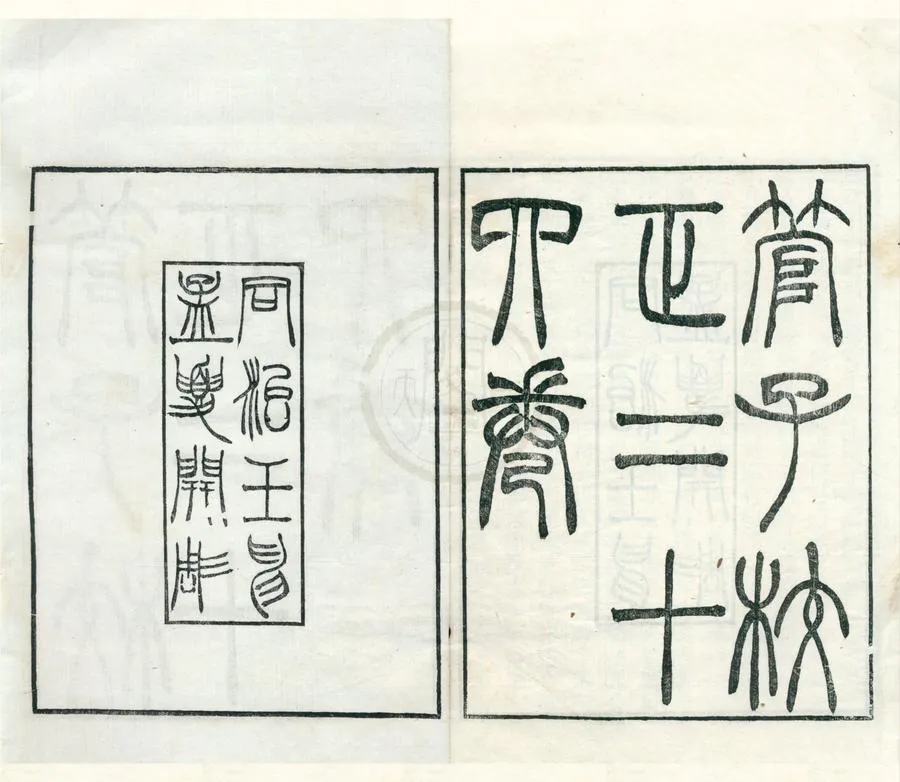 管子校
正二十
四卷
同治壬申
孟夏開彫